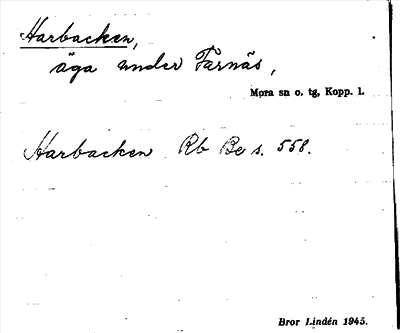 Harbacken,
äga under Farnäs,
Mora sn o. tg, Kopp. l.
Harbacken Rb Be s. 558.
Bror Lindén 1945.